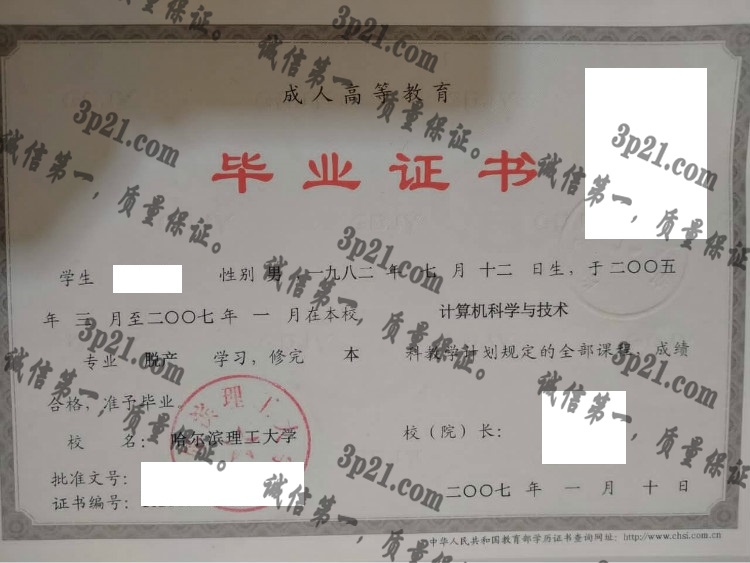 成人高等教育
毕业证书
学生 性别 男 , 一九八二 年 七 月 十二 日生, 于二〇〇五
年 三 月至二〇〇七年 一 月在本校 计算机科学与技术
专业 脱产 学习, 修完 本 科教学计划规定的全部课程, 成绩
合格, 准予毕业。
校 名: 哈尔滨理工大学 校（院）长:
批准文号:
证书编号: 二〇〇七 年 一 月 十 日
中华人民共和国教育部学历证书查询网址: http://www.chsi.com.cn
3p21.com
诚信第一，质量保证。
3p21.com
诚信第一，质量保证。
3p21.com
诚信第一，质量保证。
3p21.com
诚信第一，质量保证。
3p21.com
诚信第一，质量保证。
3p21.com
诚信第一，质量保证。
3p21.com
诚信第一，质量保证。
3p21.com
诚信第一，质量保证。